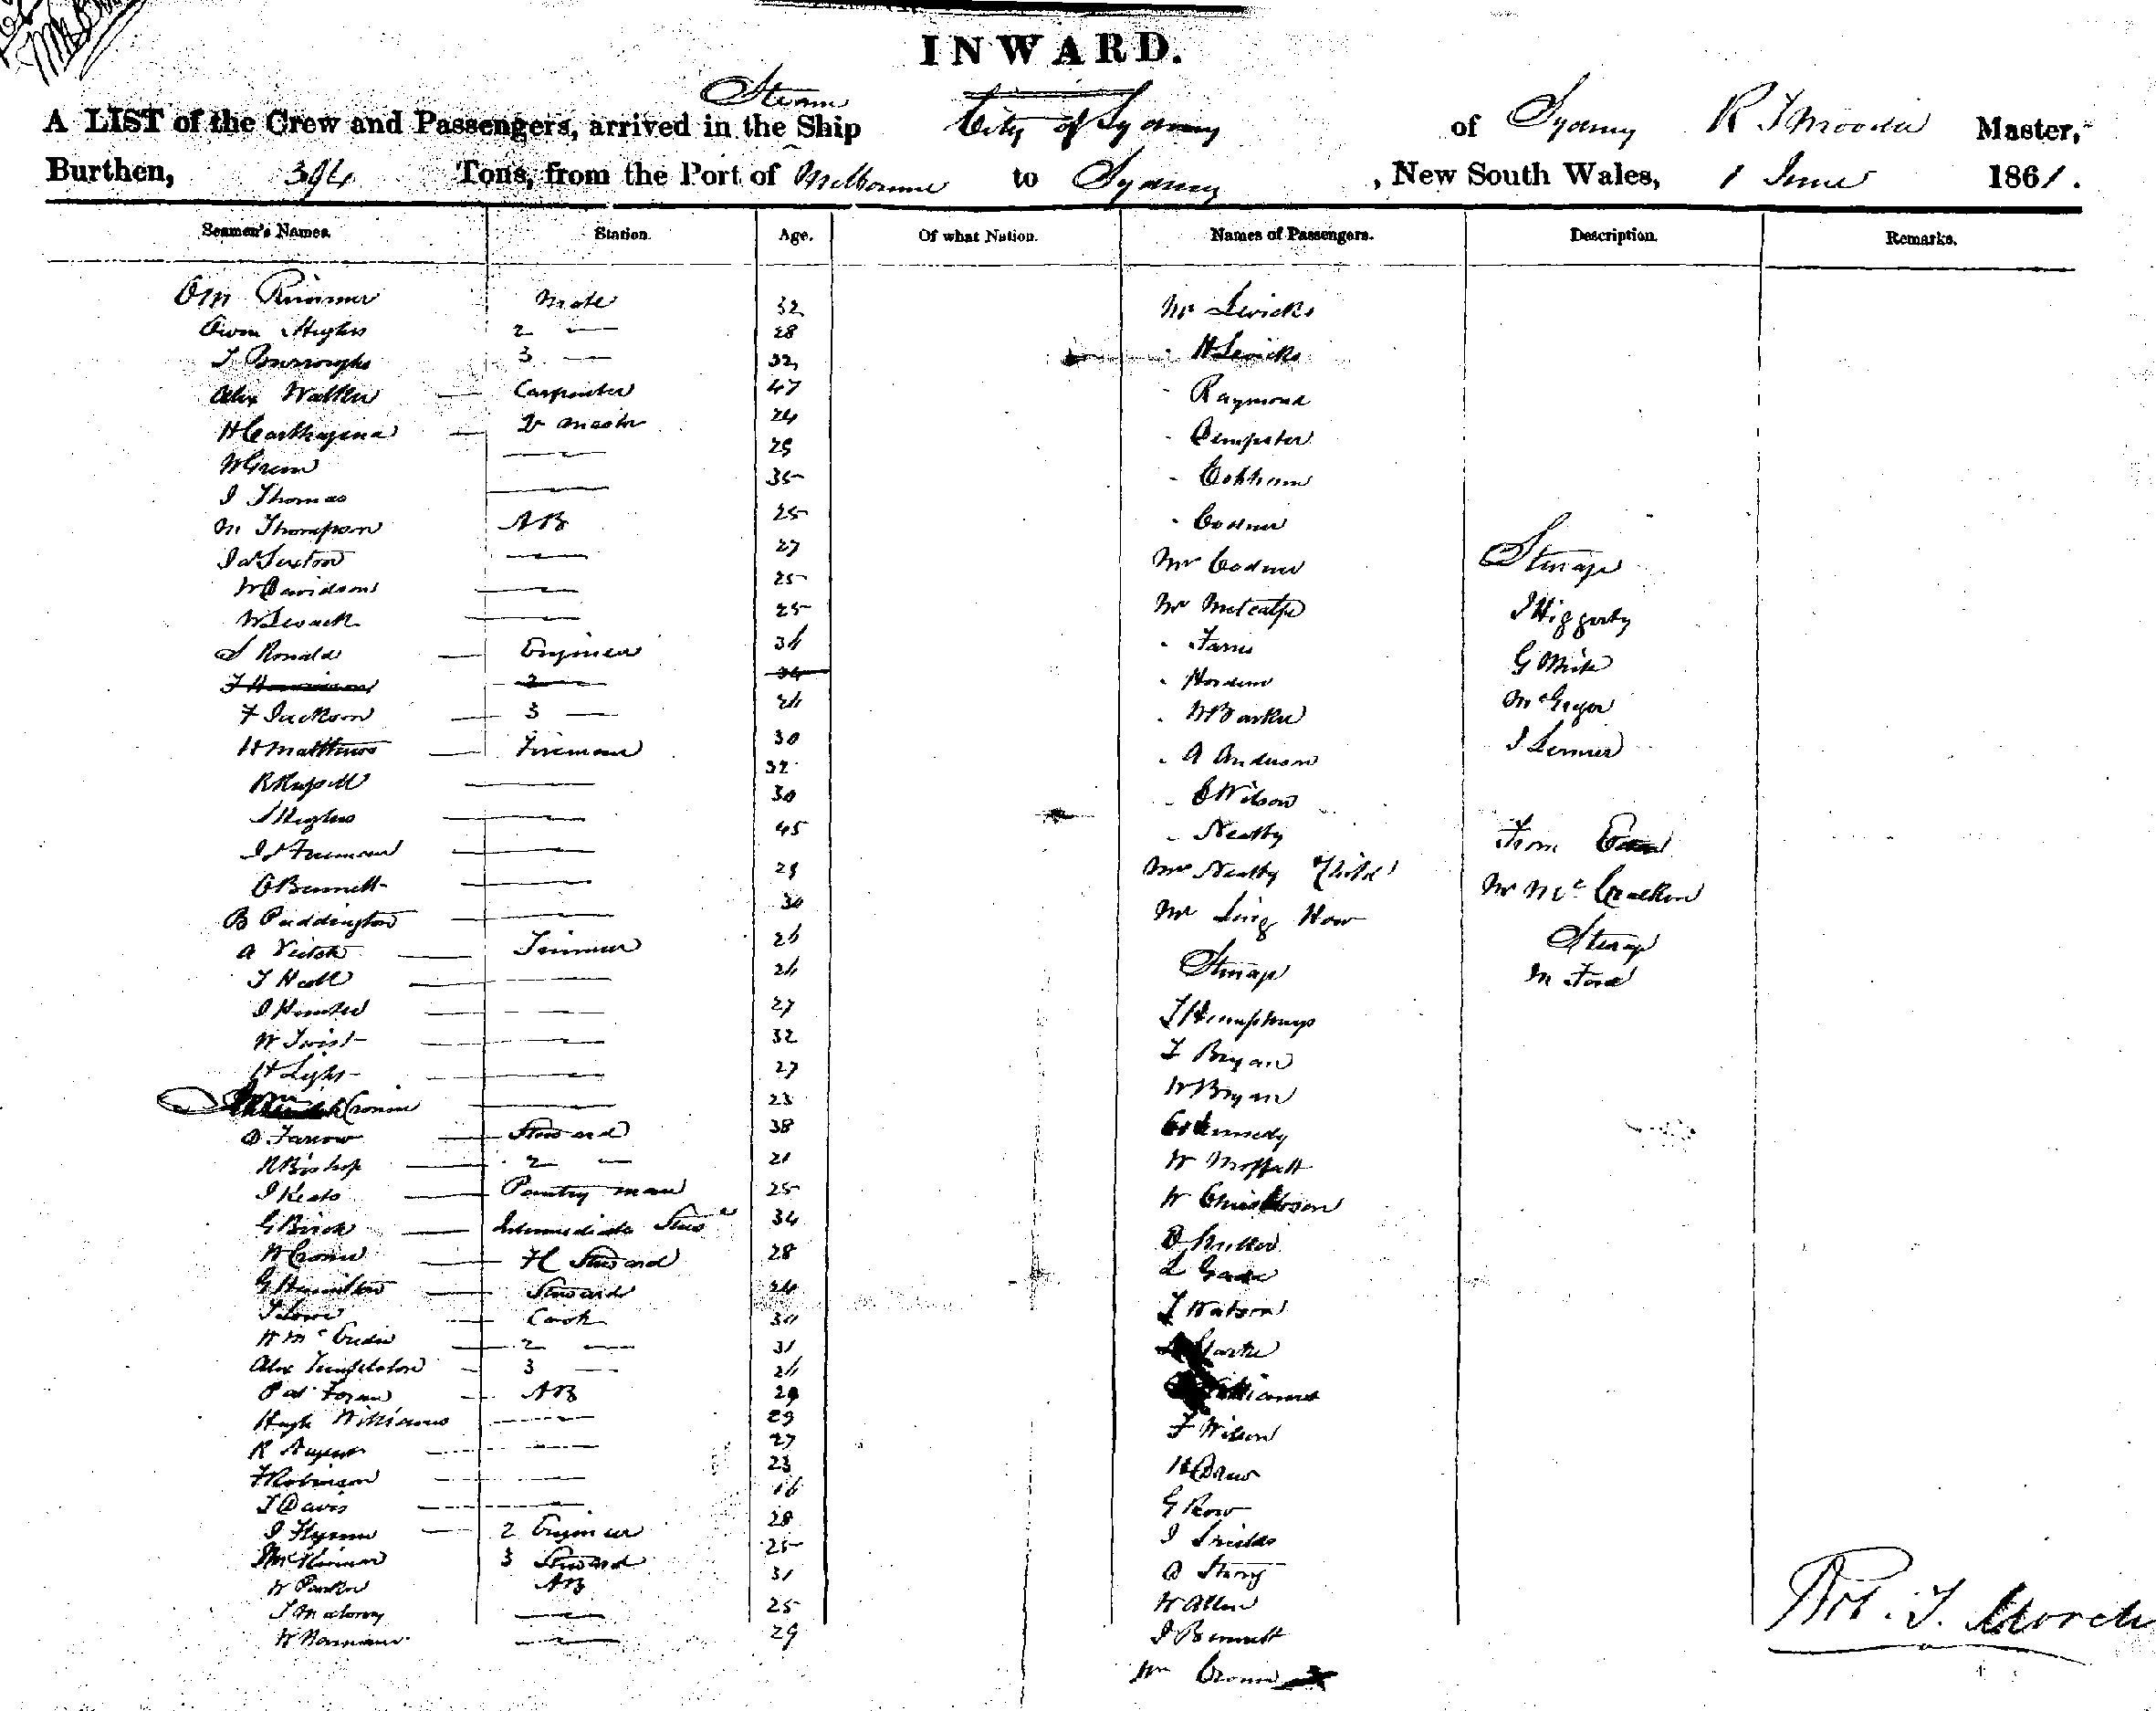 INWARD.
Steam
A LIST of the Crew and Passengers, arrived in the Ship City of Sydney of Sydney R T Moodie Master,
Burthen, 394 Tons, from the Port of Melbourne to Sydney, New South Wales, 1 June 1861.
Seamen's Names. Station. Age. Of what Nation. Names of Passengers. Description. Remarks.
Mate 32 Mr Levicks
Owen Hughes 2 — 28 " H Levicks
T Burroughs 3 — 32
Alex Walker — Carpenter 47 " Raymond
H Carthagena — Qr Master 24 " Dempster
W Green — 25
J Thomas — 35 " Cobham
M Thompson AB 25 " Codner
J Sexton — 27 Mrs Codner Steerage
W Davidson — 25
W — 25 Mr Metcalfe J Higgerty
S Ronald — Engineer 26 " Farris G White
2 — " Hordern McGregor
F Jackson — 3 — 26 " W Barker
H Matthews — Fireman 30 " A Anderson
R Russell — 32
J Hughes — 30 " E Wilson
J Freeman — 45 " Neatby From
O Bennett — 29 Mrs Neatby & Child Mr McCracken
B Puddington — 30 Mr Ling How
A Veitch — Trimmer 26 Steerage
T Hall — 26 Steerage M Ford
J Hunter — 27 T Humphreys
W Twist — 32 T Bryan
H Light — 27 W Bryan
Cronin — 23
D Farrow — Steward 38 Kennedy
R Bishop — 2 — 21 W Moffatt
J Keats — Pantry man 25 W
G Birch — Intermediate Stewd 34 D
W Crome — F C Steward 28 L
G Hamilton — Steward 24 T Watson
T Lowe — Cook 30
W Mc — 2 — 31 Clarke
Alex Templeton — 3 — 26
Pat Foran — AB 29 Williams
Hugh Williams — 29 F Wilson
R — 27
F Robinson — 23 H Drew
T Davis — 16 G Row
J Flynn — 2 Engineer 28 J Shields
3 Steward 25 D
W Parker AB 31 W Allen
J Maloney — 25 J Bennett
W Norman — 29
Wm Cronin